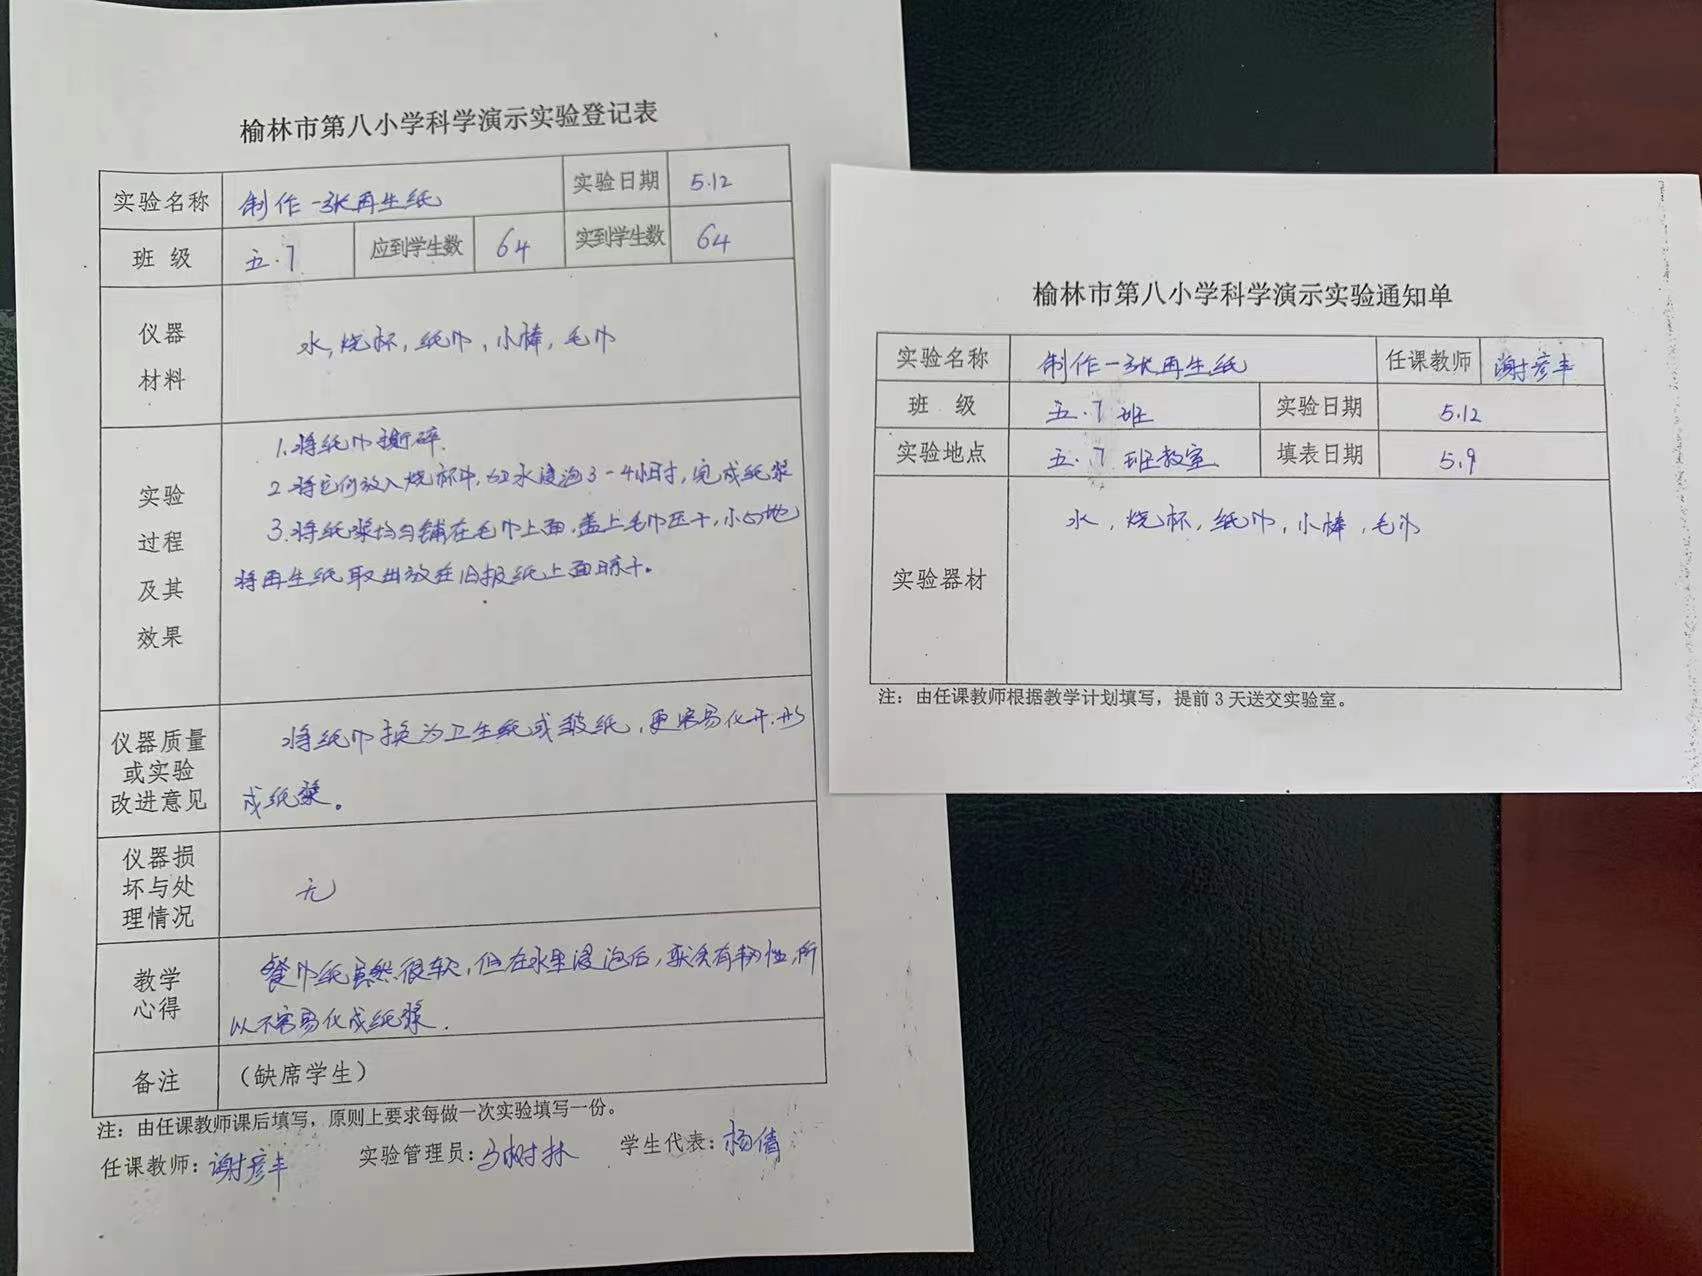 榆林市第八小学科学演示实验登记表
实验名称 制作一张再生纸 实验日期 5.12
班 级 五.7 应到学生数 64 实到学生数 64
仪器
材料
水,烧杯,纸巾,小棒,毛巾
实验
过程
及其
效果
1.将纸巾撕碎.
2 将它们放入烧杯中,加水浸泡3-4小时,完成纸浆
3.将纸浆均匀铺在毛巾上面,盖上毛巾压干,小心地
将再生纸取出放在旧报纸上面晾干。
仪器质量
或实验
改进意见
将纸巾换为卫生纸或皱纸,更容易化开.形
成纸浆。
仪器损
坏与处
理情况
无
教学
心得
餐巾纸虽然很软,但在水里浸泡后,更具有韧性,所
以不容易化成纸浆.
备注 (缺席学生)
注:由任课教师课后填写,原则上要求每做一次实验填写一份。
任课教师:谢彦丰 实验管理员:马树林 学生代表:杨倩
榆林市第八小学科学演示实验通知单
实验名称 制作一张再生纸 任课教师 谢彦丰
班 级 五.7班 实验日期 5.12
实验地点 五.7班教室 填表日期 5.9
实验器材 水,烧杯,纸巾,小棒,毛巾
注:由任课教师根据教学计划填写,提前3天送交实验室。